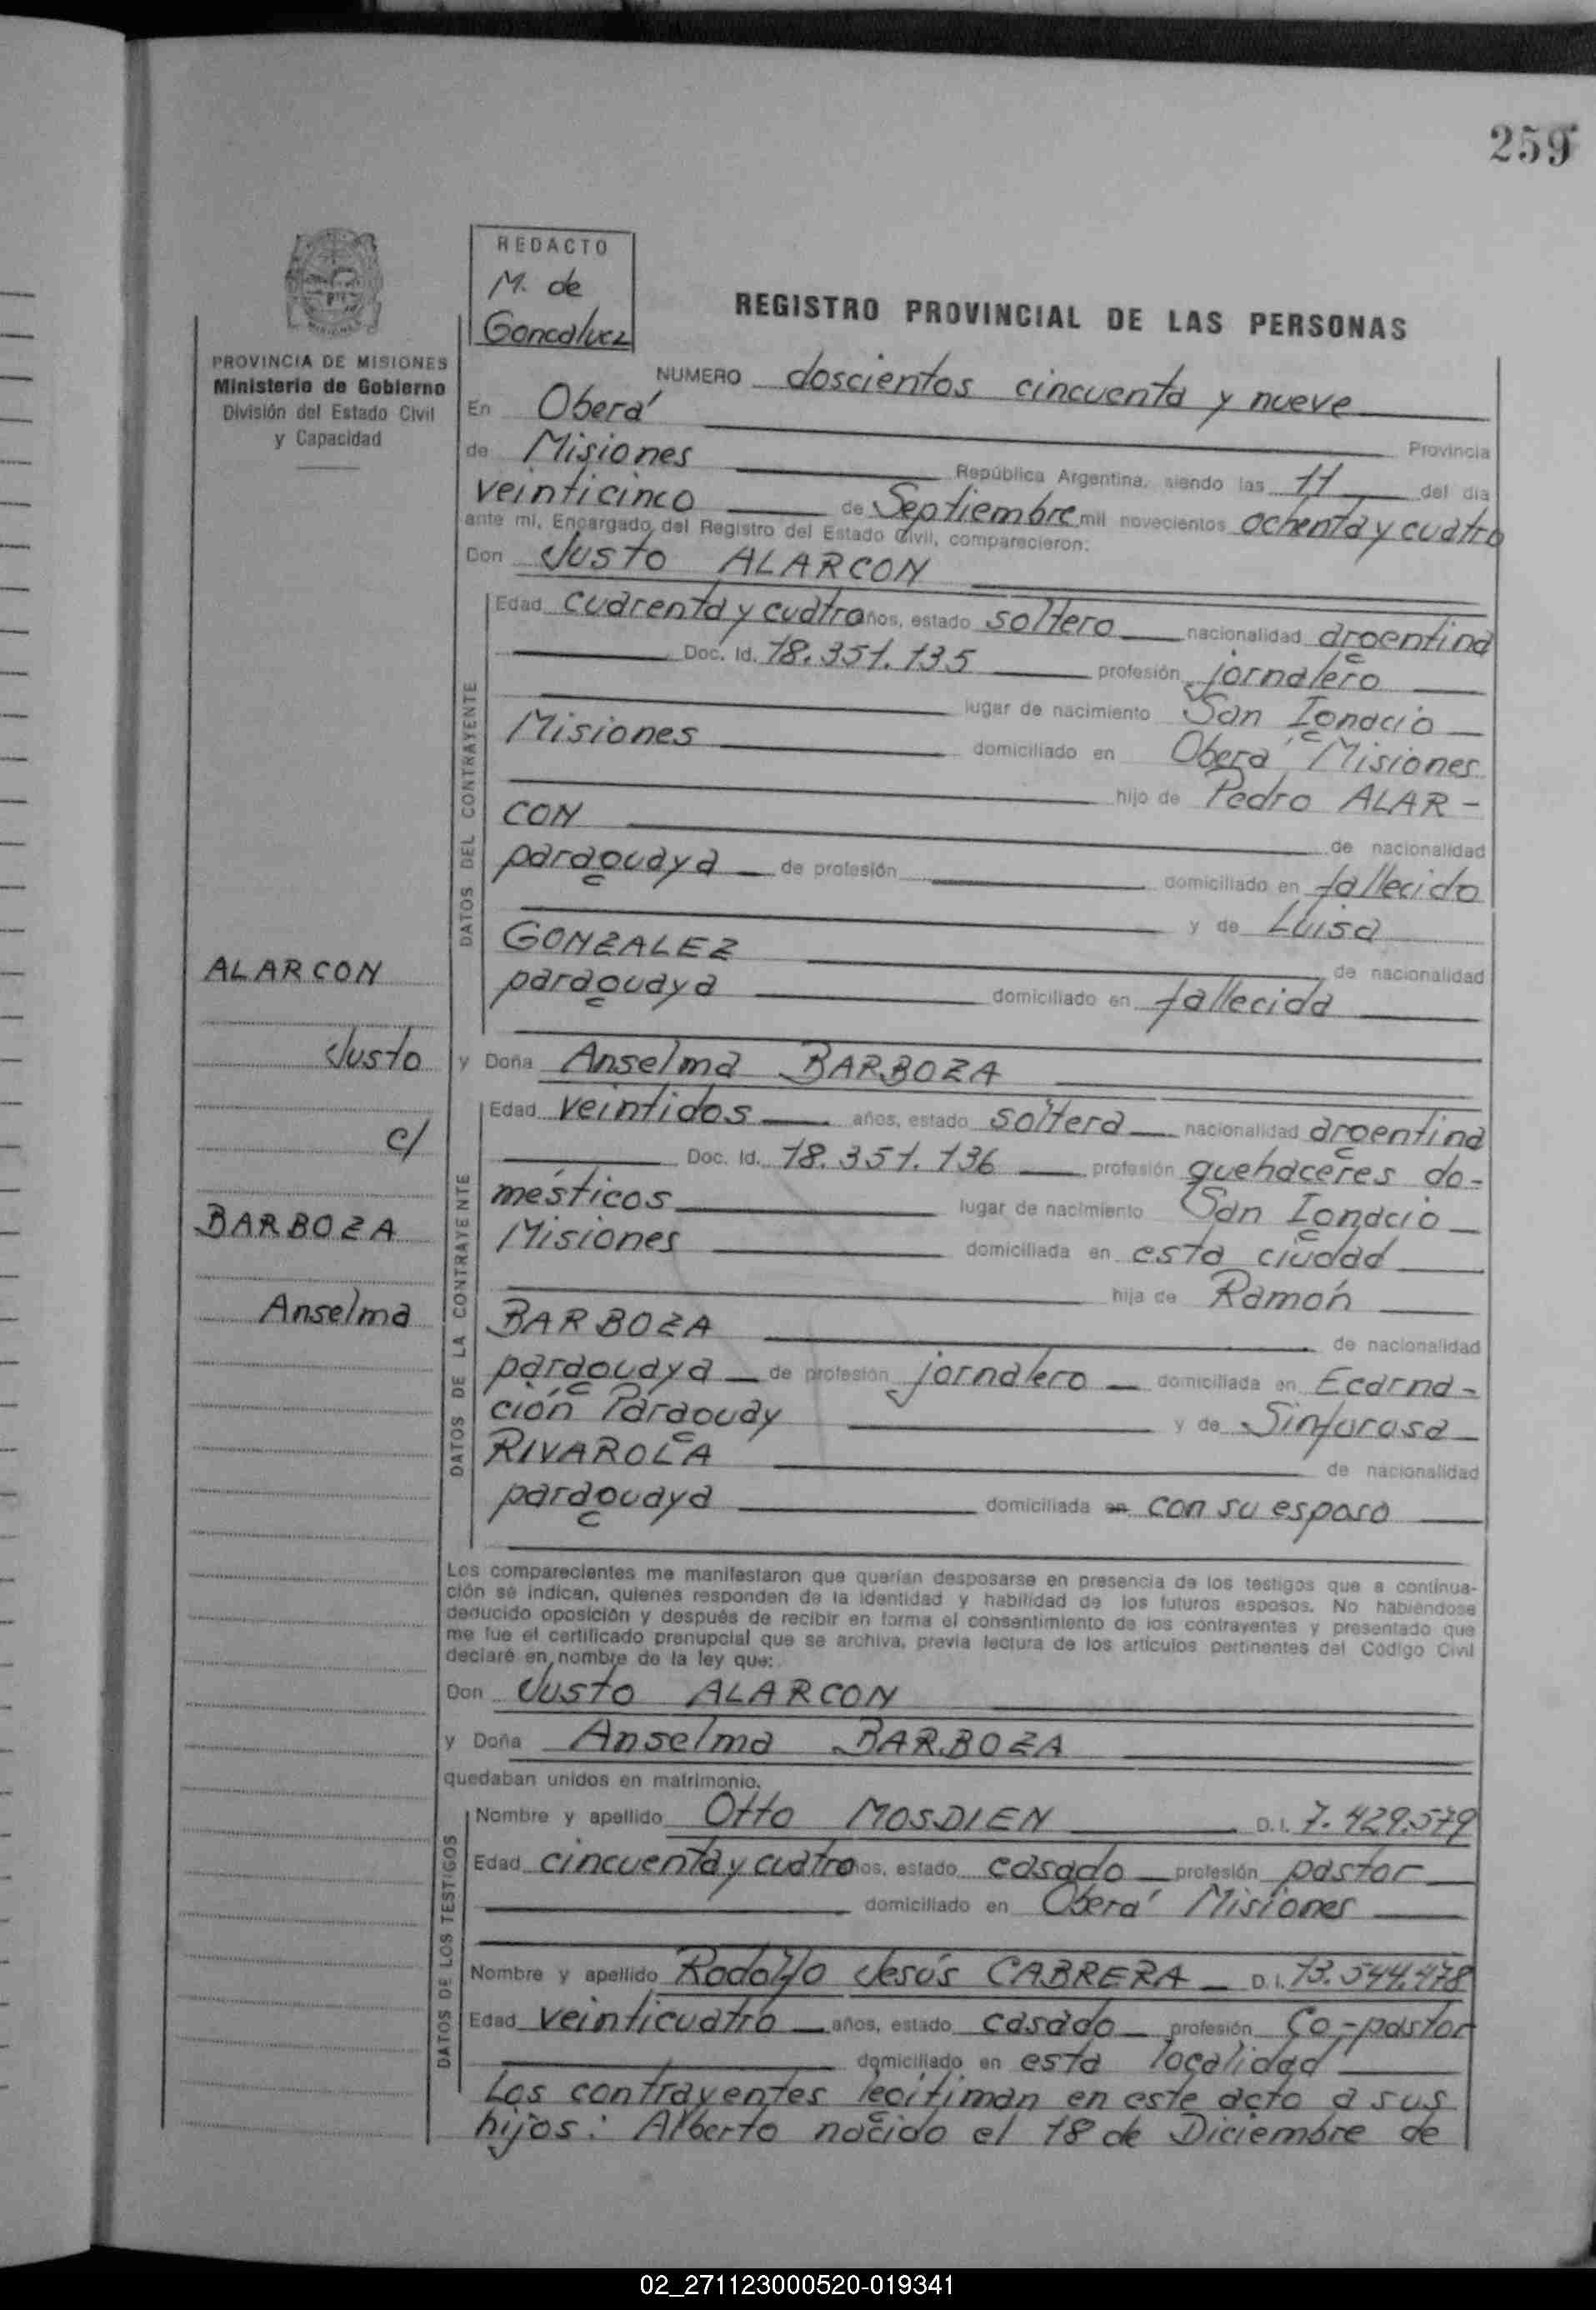 259
REDACTO
M. de
Goncalvez
PROVINCIA DE MISIONES
Ministerio de Gobierno
División del Estado Civil
y Capacidad
REGISTRO PROVINCIAL DE LAS PERSONAS
NUMERO doscientos cincuenta y nueve
En Oberá
Provincia
de Misiones República Argentina, siendo las 11 del día
veinticinco de Septiembre mil novecientos ochenta y cuatro
ante mí, Encargado del Registro del Estado Civil, comparecieron:
Don Justo ALARCON
DATOS DEL CONTRAYENTE
Edad cuarenta y cuatro años, estado soltero nacionalidad argentina
Doc. Id. 18.351.135 profesión jornalero
lugar de nacimiento San Ignacio
Misiones domiciliado en Oberá Misiones
hijo de Pedro ALAR-
CON de nacionalidad
paraguaya de profesión domiciliado en fallecido
y de Luisa
GONZALEZ de nacionalidad
paraguaya domiciliado en fallecida
ALARCON
Justo
c/
BARBOZA
Anselma
y Doña Anselma BARBOZA
DATOS DE LA CONTRAYENTE
Edad veintidos años, estado soltera nacionalidad argentina
Doc. Id. 18.351.136 profesión quehaceres do-
mésticos lugar de nacimiento San Ignacio
Misiones domiciliada en esta ciudad
hija de Ramón
BARBOZA de nacionalidad
paraguaya de profesión jornalero domiciliada en Ecarna-
ción Paraguay y de Sinforosa
RIVAROLA de nacionalidad
paraguaya domiciliada en con su esposo
Los comparecientes me manifestaron que querían desposarse en presencia de los testigos que a continua-
ción se indican, quienes responden de la identidad y habilidad de los futuros esposos. No habiéndose
deducido oposición y después de recibir en forma el consentimiento de los contrayentes y presentado que
me fue el certificado prenupcial que se archiva, previa lectura de los artículos pertinentes del Código Civil
declaré en nombre de la ley que:
Don Justo ALARCON
y Doña Anselma BARBOZA
quedaban unidos en matrimonio.
DATOS DE LOS TESTIGOS
Nombre y apellido Otto MOSDIEN D.I. 7.429.579
Edad cincuenta y cuatro años, estado casado profesión pastor
domiciliado en Oberá Misiones
Nombre y apellido Rodolfo Jesús CABRERA D.I. 13.544.478
Edad veinticuatro años, estado casado profesión Co-pastor
domiciliado en esta localidad
Los contrayentes legitiman en este acto a sus
hijos: Alberto nacido el 18 de Diciembre de
02_271123000520-019341